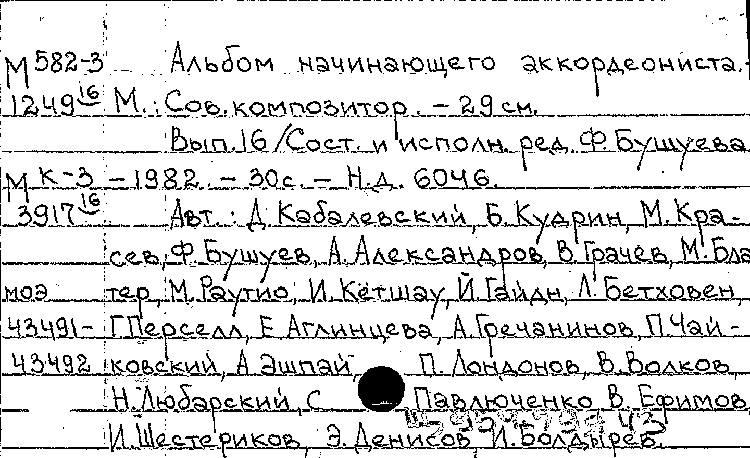 М 582-3 Альбом начинающего аккордеониста.-
1249 16 М.: Сов. композитор. - 29 см.
Вып. 16 / Сост. и исполн. ред. Ф. Бушуева.
М К-3 - 1982. - 30 с. - Н.д. 6046.
3917 16 Авт.: Д. Кабалевский, Б. Кудрин, М. Кра-
сев, Ф. Бушуев, А. Александров, В. Грачев, М. Бла
моэ тер, М. Раутио, И. Кётшау, Й. Гайдн, Л. Бетховен,
43491- Г. Перселл, Е. Аглинцева, А. Гречанинов, П. Чай-
43492 ковский, А. Эшпай, П. Лондонов, В. Волков,
Н. Любарский, С Павлюченко В. Ефимов
И. Шестериков, Э. Денисов И. Болдырев.